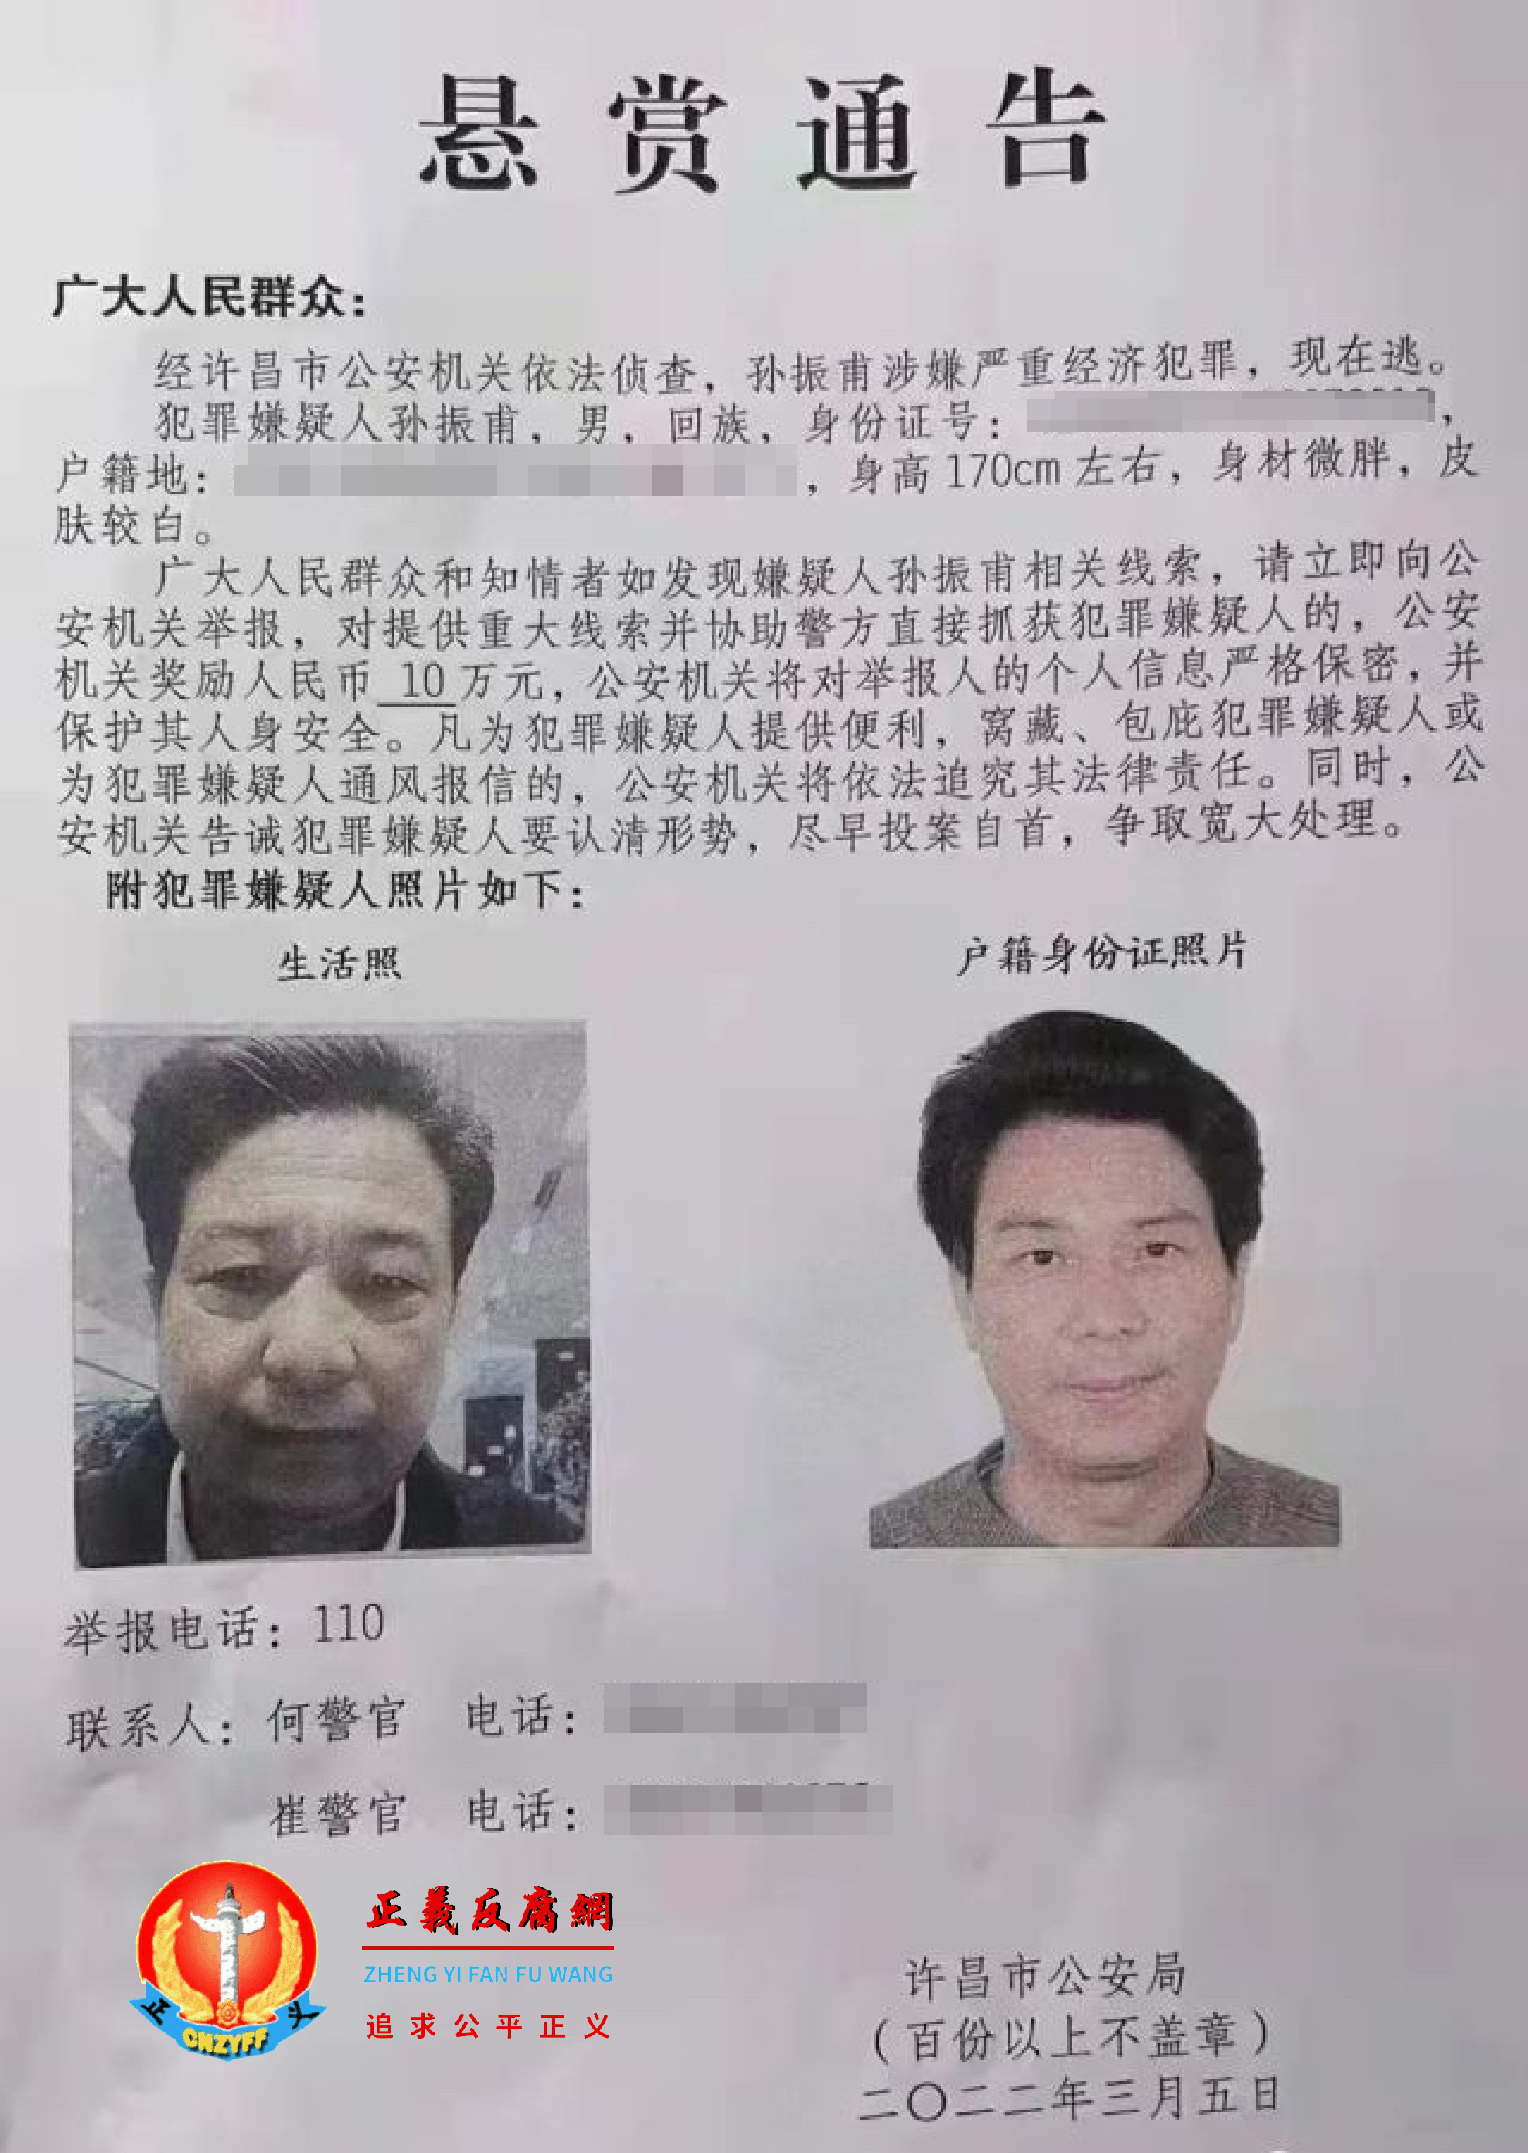 悬赏通告
广大人民群众：
经许昌市公安机关依法侦查，孙振甫涉嫌严重经济犯罪，现在逃。
犯罪嫌疑人孙振甫，男，回族，身份证号：，
户籍地：，身高170cm左右，身材微胖，皮
肤较白。
广大人民群众和知情者如发现嫌疑人孙振甫相关线索，请立即向公
安机关举报，对提供重大线索并协助警方直接抓获犯罪嫌疑人的，公安
机关奖励人民币 10 万元，公安机关将对举报人的个人信息严格保密，并
保护其人身安全。凡为犯罪嫌疑人提供便利，窝藏、包庇犯罪嫌疑人或
为犯罪嫌疑人通风报信的，公安机关将依法追究其法律责任。同时，公
安机关告诫犯罪嫌疑人要认清形势，尽早投案自首，争取宽大处理。
附犯罪嫌疑人照片如下：
生活照
户籍身份证照片
举报电话：110
联系人：何警官 电话：
崔警官 电话：
正義反腐網
ZHENG YI FAN FU WANG
追求公平正义
正义
CNZYFF
许昌市公安局
（百份以上不盖章）
二〇二二年三月五日